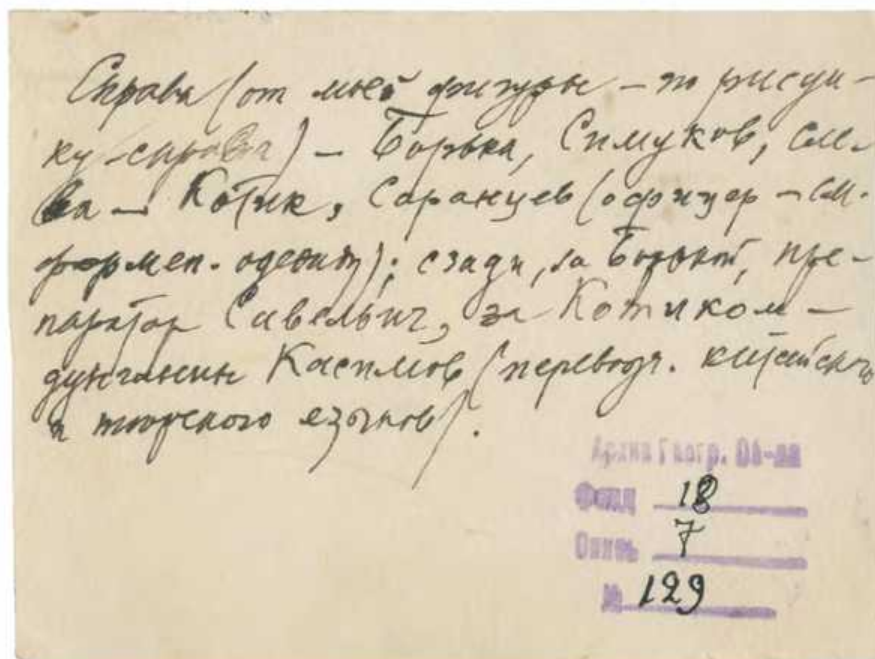 Справа (от моей фигуры – по рисун-
ку справа) – Борька, Симуков, сле-
ва – Котик, Саранцев (офицер – см.
формен. одежду); сзади, за Борькой, пре-
паратор Савельич, за Котиком –
дунганин Касимов (переводч. китайского
и тюрского языков).
Архив Геогр. Об-ва
Фонд 18
Опись 7
№ 129